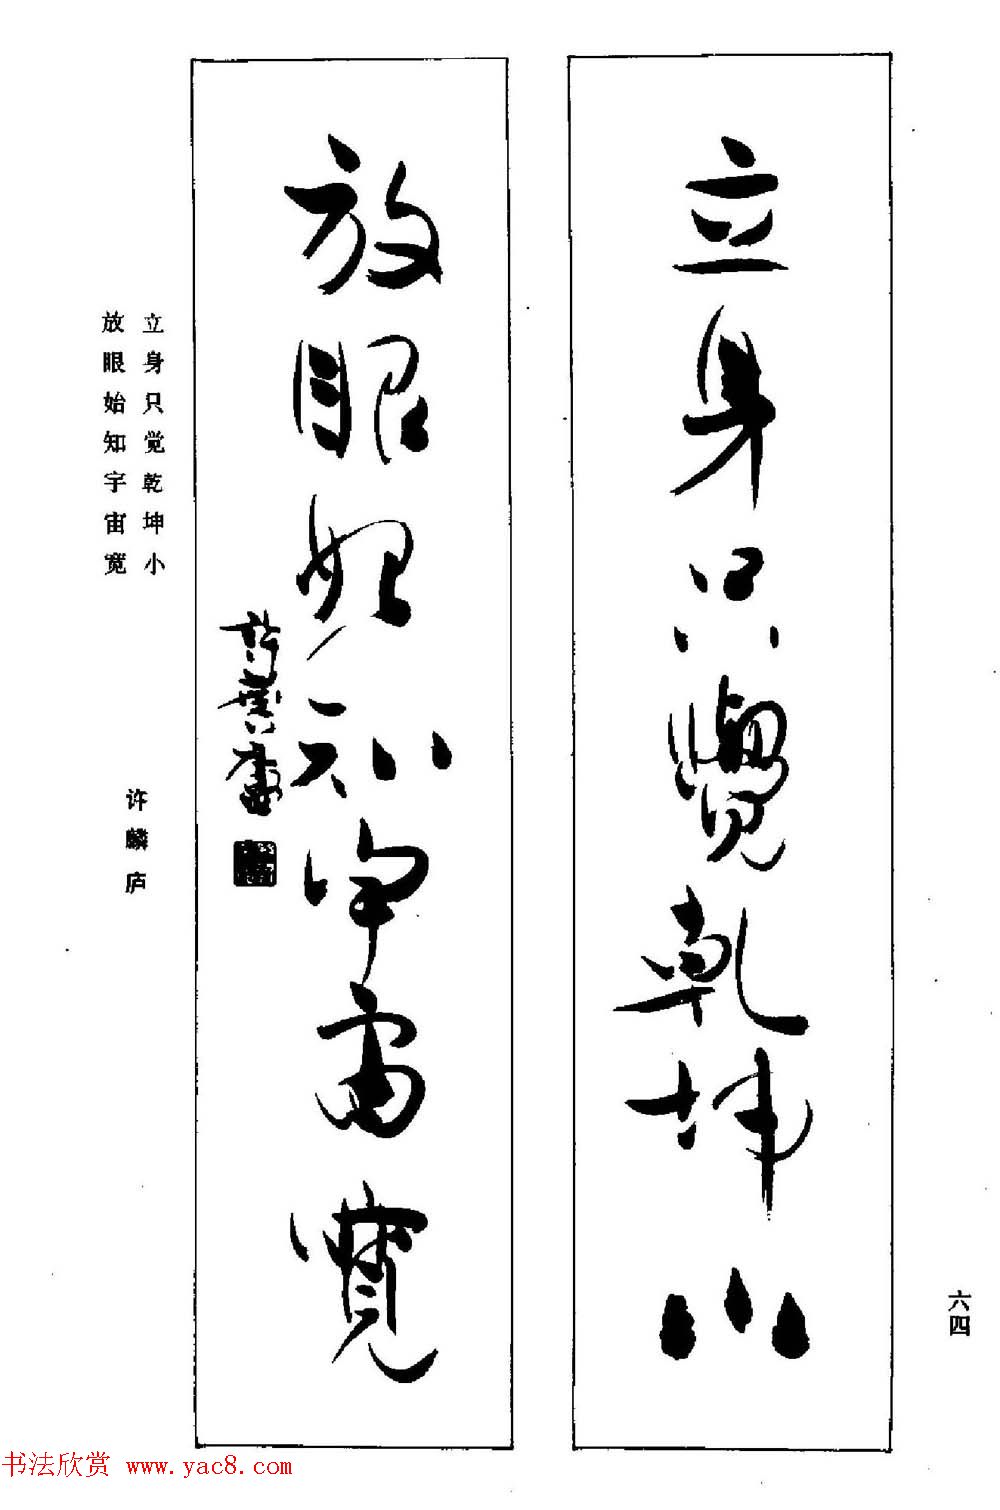 立身只覺乾坤小
放眼始知宇宙寬
許麟廬
立身只觉乾坤小
放眼始知宇宙宽
许麟庐
六四
书法欣赏 www.yac8.com